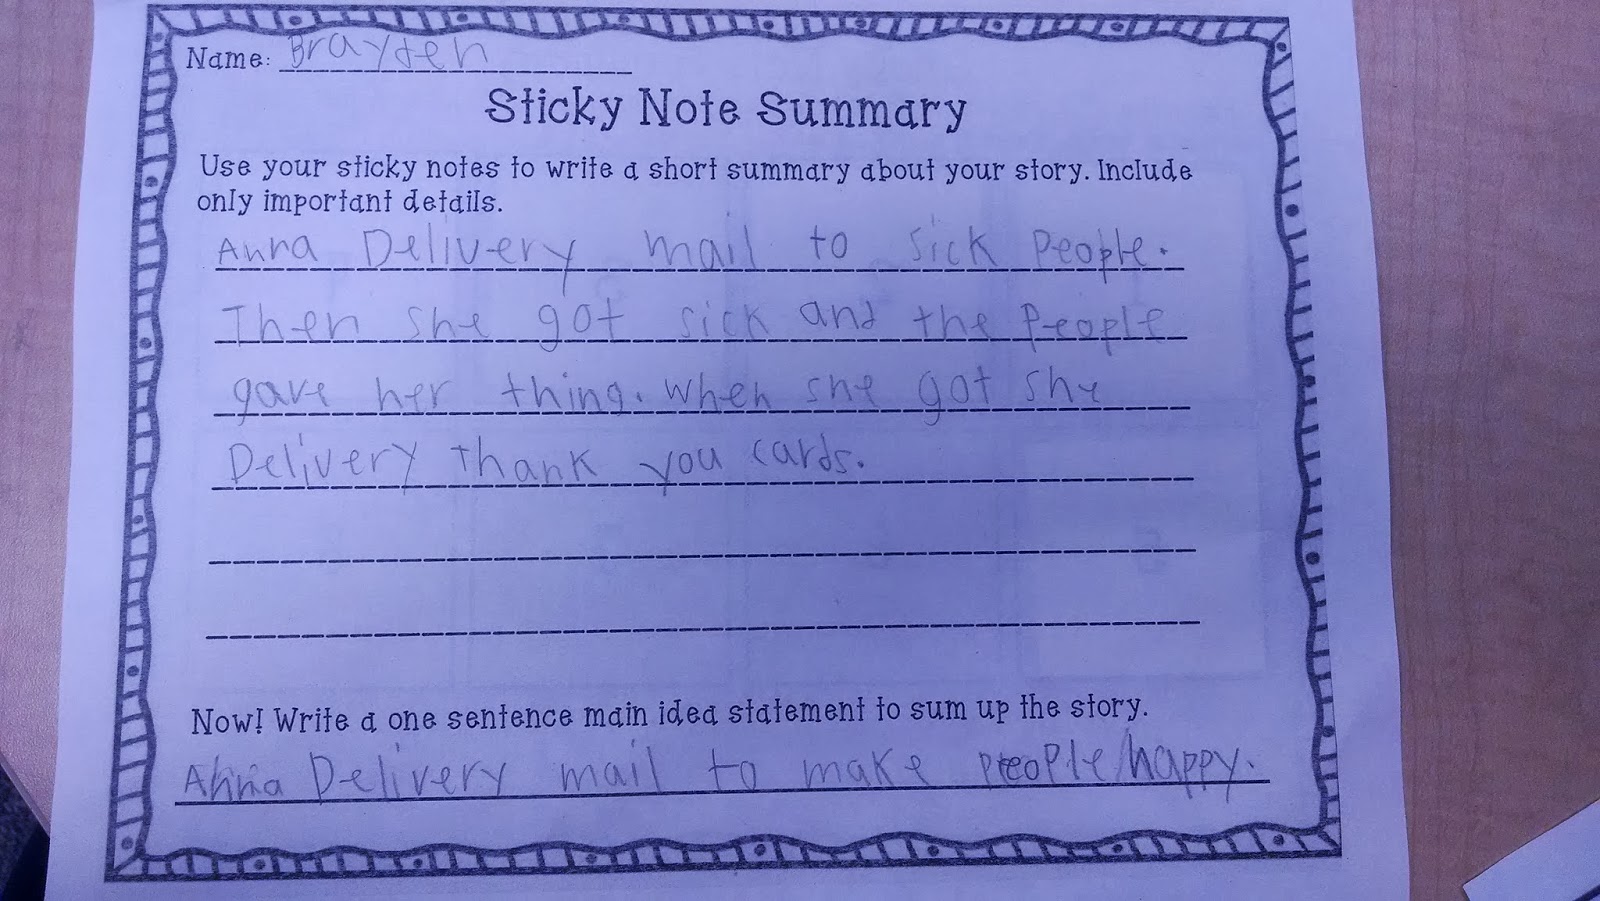 Name: Brayden
Sticky Note Summary
Use your sticky notes to write a short summary about your story. Include
only important details.
Anna Delivery mail to sick people.
Then she got sick and the People
gave her thing. when she got she
Delivery thank you cards.
Now! Write a one sentence main idea statement to sum up the story.
Anna Delivery mail to make people happy.